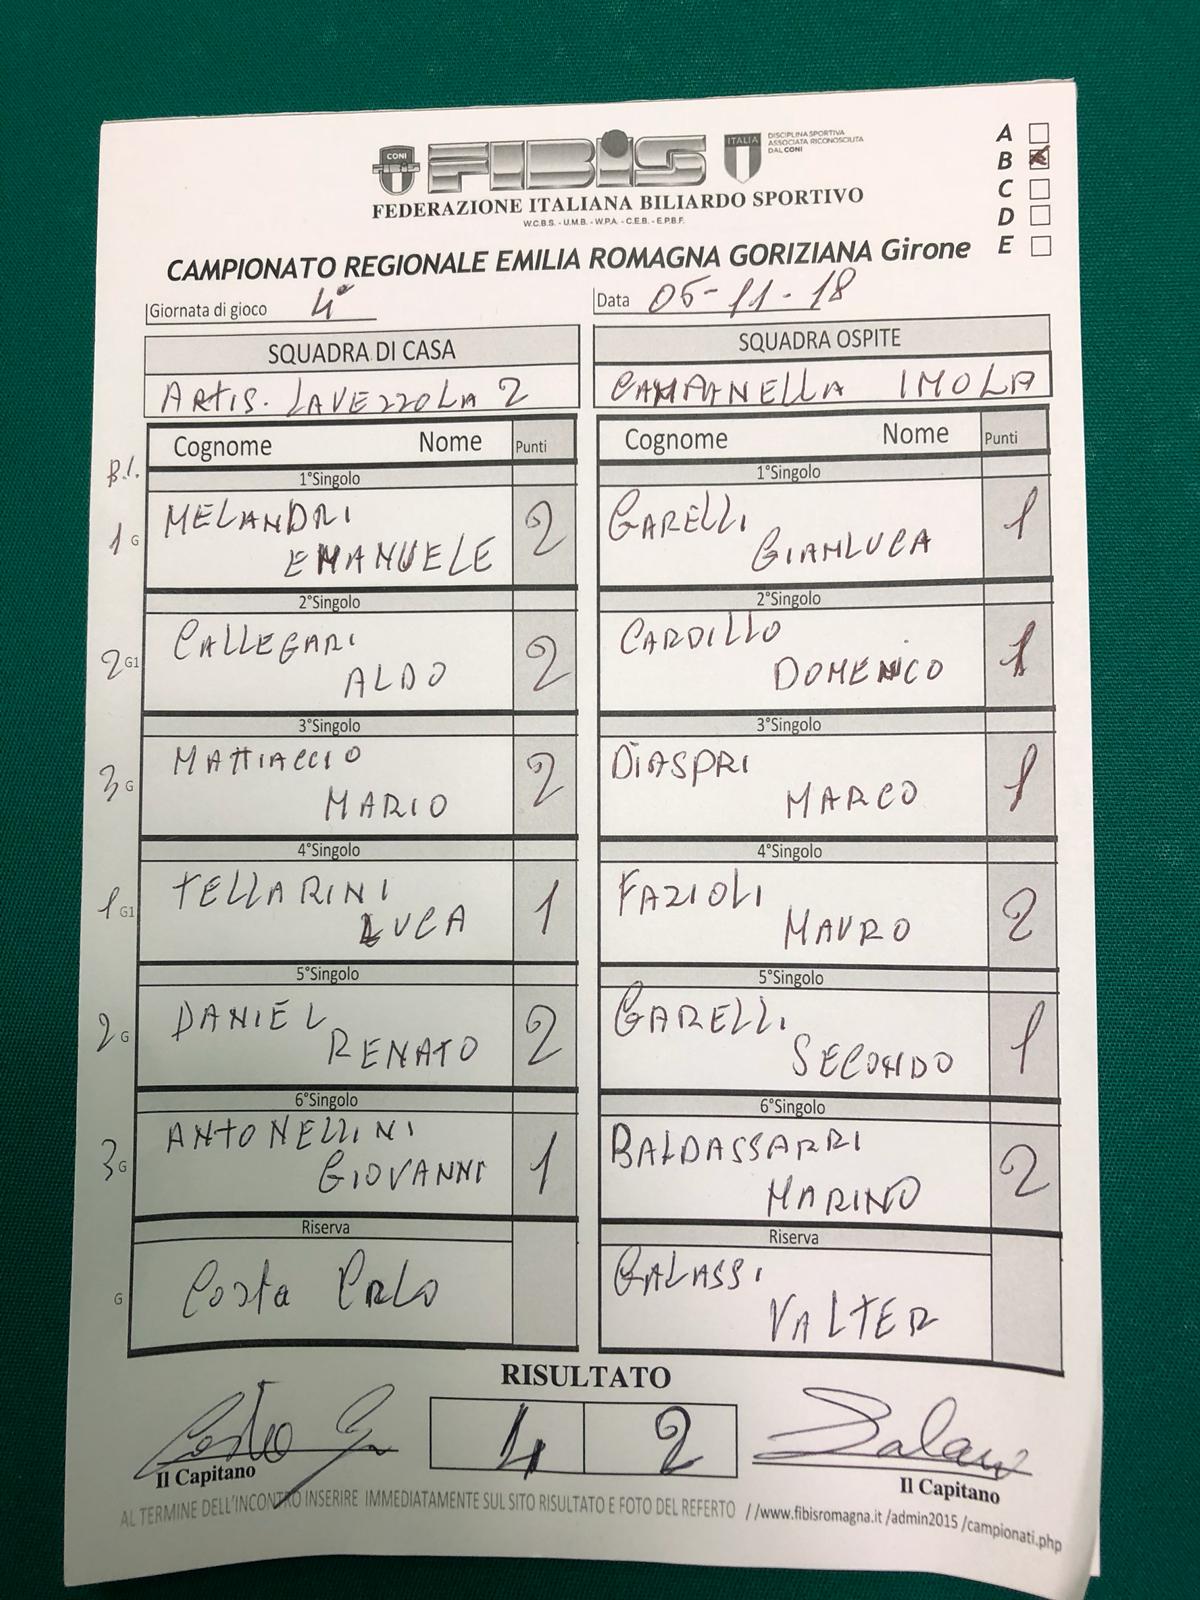 CONI
FIBIS
ITALIA
DISCIPLINA SPORTIVA
ASSOCIATA RICONOSCIUTA
DAL CONI
FEDERAZIONE ITALIANA BILIARDO SPORTIVO
W.C.B.S. - U.M.B. - W.P.A. - C.E.B. - E.P.B.F.
A
B
C
D
E
CAMPIONATO REGIONALE EMILIA ROMAGNA GORIZIANA Girone
Giornata di gioco 4°
Data 05-11-18
SQUADRA DI CASA
ARTIS. LAVEZZOLA 2
SQUADRA OSPITE
CAMPANELLA IMOLA
B.I.
Cognome Nome Punti
Cognome Nome Punti
1°Singolo
1°Singolo
1 G MELANDRI
EMANUELE 2
GARELLI
GIANLUCA 1
2°Singolo
2°Singolo
2 G1 CALLEGARI
ALDO 2
CARDILLO
DOMENICO 1
3°Singolo
3°Singolo
3 G MATTIACCIO
MARIO 2
DIASPRI
MARCO 1
4°Singolo
4°Singolo
1 G1 TELLARINI
LUCA 1
FAZIOLI
MAURO 2
5°Singolo
5°Singolo
2 G DANIEL
RENATO 2
GARELLI
SECONDO 1
6°Singolo
6°Singolo
3 G ANTONELLINI
GIOVANNI 1
BALDASSARRI
MARINO 2
Riserva
Riserva
G Costa
GALASSI
VALTER
RISULTATO
4 2
Il Capitano
Il Capitano
AL TERMINE DELL'INCONTRO INSERIRE IMMEDIATAMENTE SUL SITO RISULTATO E FOTO DEL REFERTO //www.fibisromagna.it /admin2015 /campionati.php